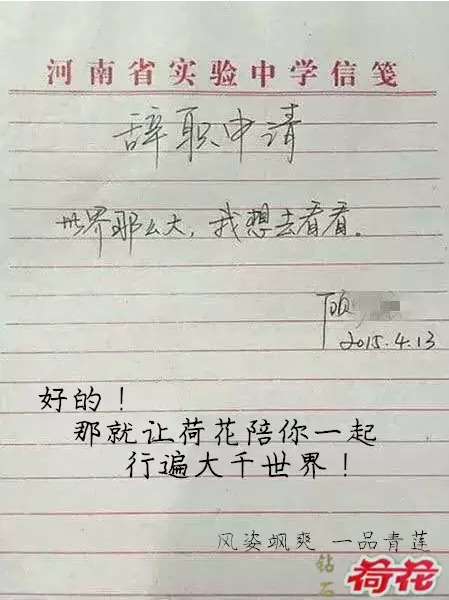 河南省实验中学信笺
辞职申请
世界那么大，我想去看看。
顾
2015.4.13
好的！
那就让荷花陪你一起
行遍大千世界！
风姿飒爽 一品青莲
钻石
荷花